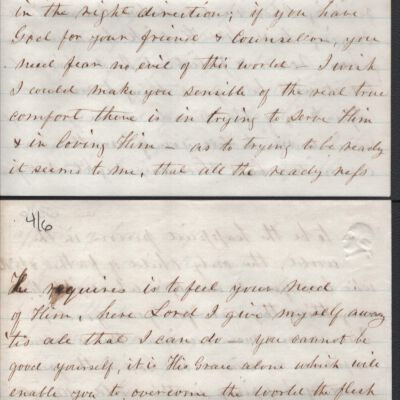 in the right direction; if you have
God for your friend & Counsellor, you
need fear no evil of this world – I wish
I could make you sensible of the real true
comfort there is in trying to serve Him
& in loving Him – as to trying to be ready
it seems to me, that all the ready ness
4/6
He requires is to feel your need
of Him, here Lord I give myself away
tis all that I can do – you cannot be
good yourself, it is His Grace alone which will
enable you to overcome the world the flesh